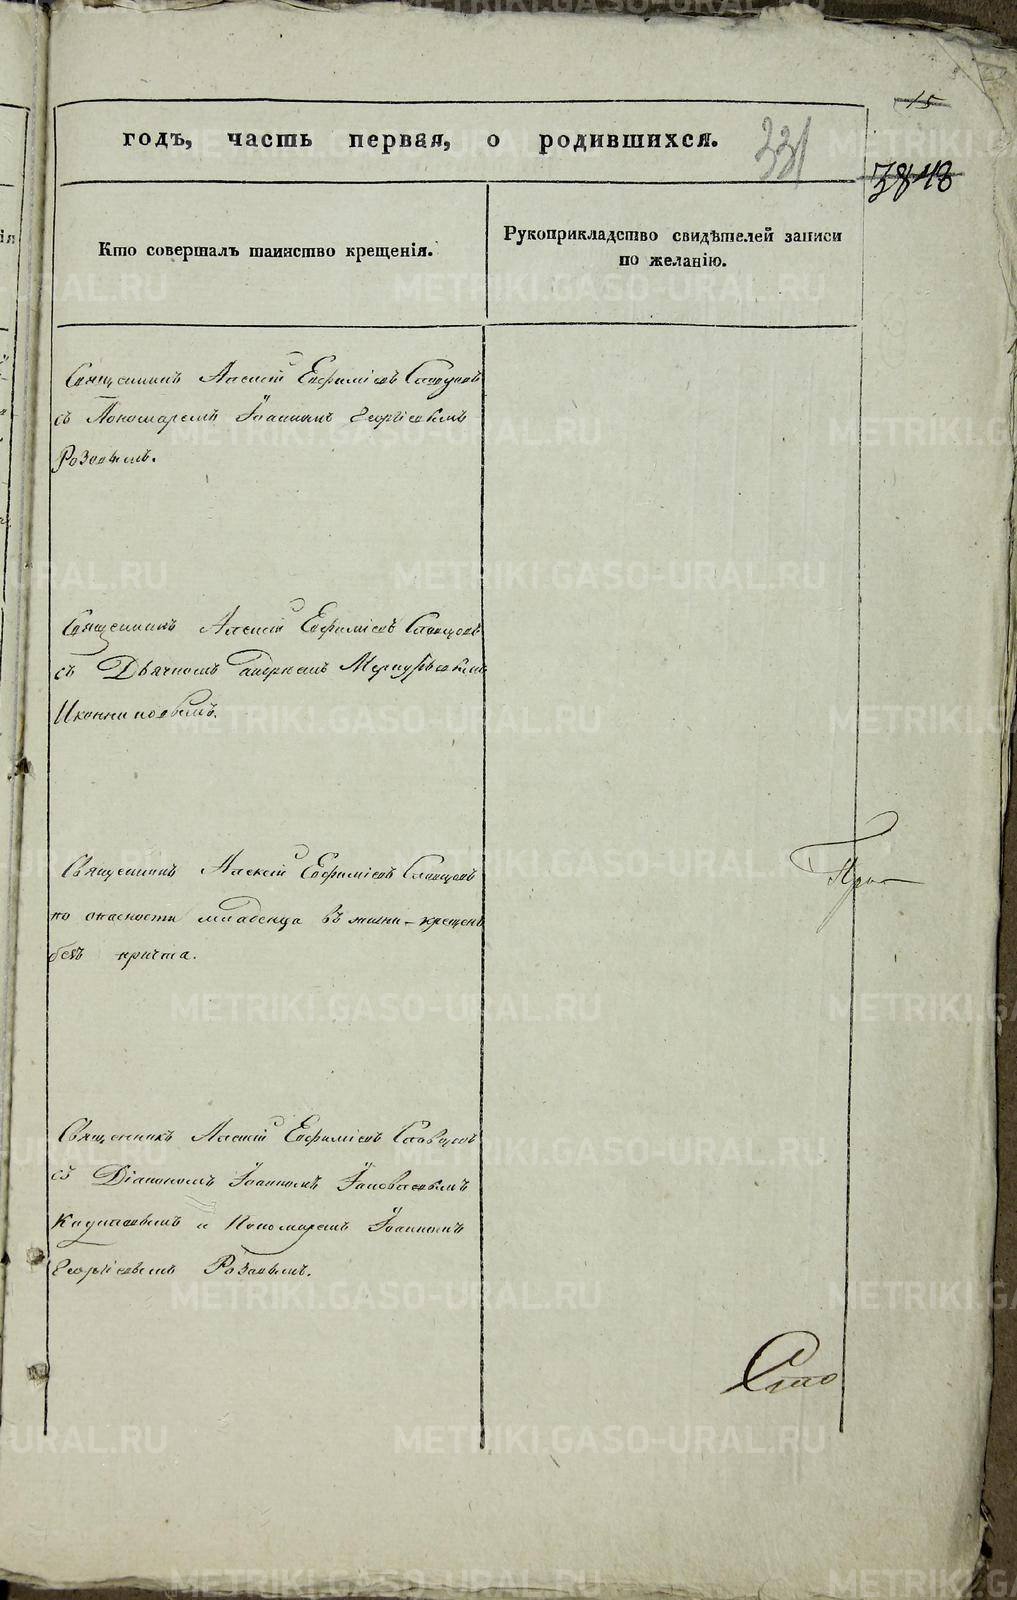 15
годъ, часть первая, о родившихся.
331
3848
Кто совершалъ таинство крещенія.
Рукоприкладство свидѣтелей записи
по желанію.
Священникъ Алексій Евфиміевъ Словцовъ
съ Пономаремъ Іоанномъ Георгіевымъ
Розовымъ.
Священникъ Алексій Евфиміевъ Словцовъ
съ Дьячкомъ Меркурьевымъ
Иконниковымъ.
Священникъ Алексій Евфиміевъ Словцовъ
по опасности младенца въ жизни - крещенъ
безъ причта.
Священникъ Алексій Евфиміевъ Словцовъ
съ Діакономъ Іоанномъ Іаковлевымъ
и Пономаремъ Іоанномъ
Георгіевымъ Розовымъ.
METRIKI.GASO-URAL.RU